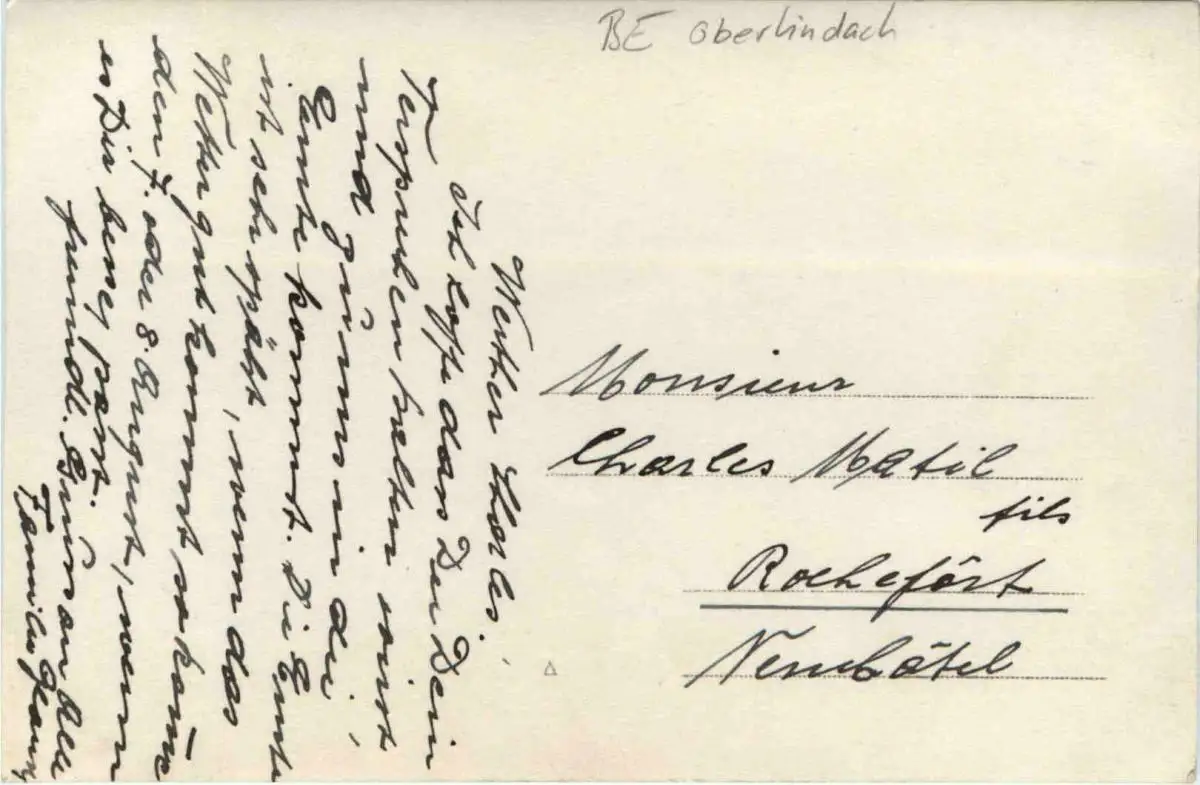 BE Oberlindach
Werther Charles!
Ich hoffe dass Du Dein
Versprechen halten wirst
und zu uns in die
Ernte kommst. Die Ernte
ist sehr späht, wenn das
Wetter gut kommt so käme
den 7. oder 8. August, wenn
es Dir beser passt.
freundl. Grüss an Alle
Familie
Monsieur
Charles Matil
fils
Rochefôrt
Neuchâtel